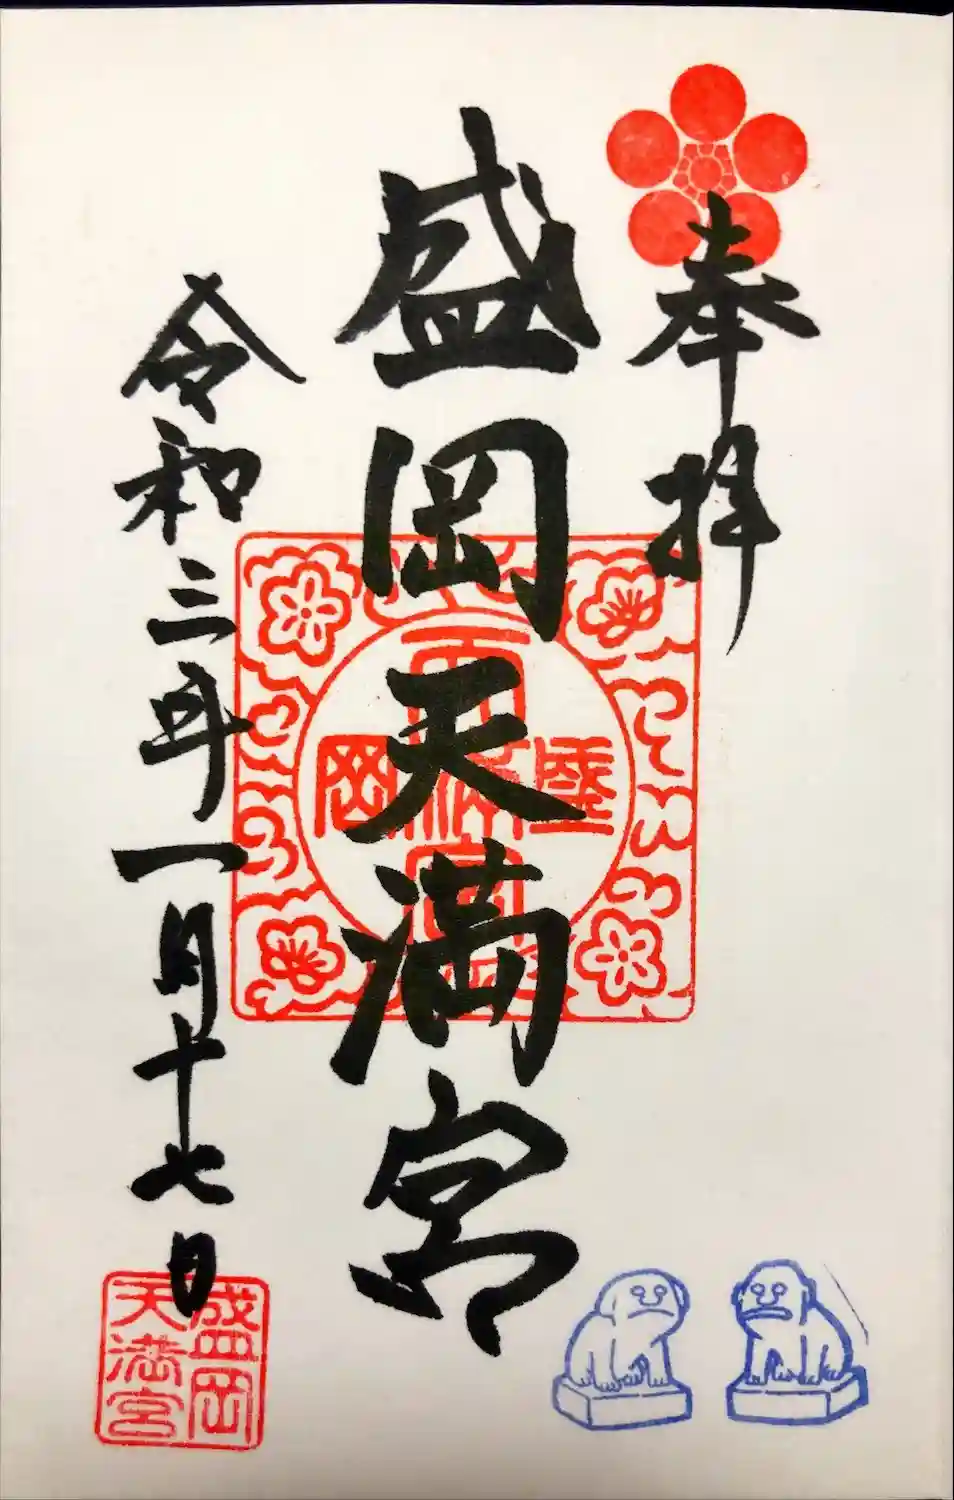 奉拝
盛岡天満宮
令和三年一月十七日
盛岡
天満宮
盛岡天満宮